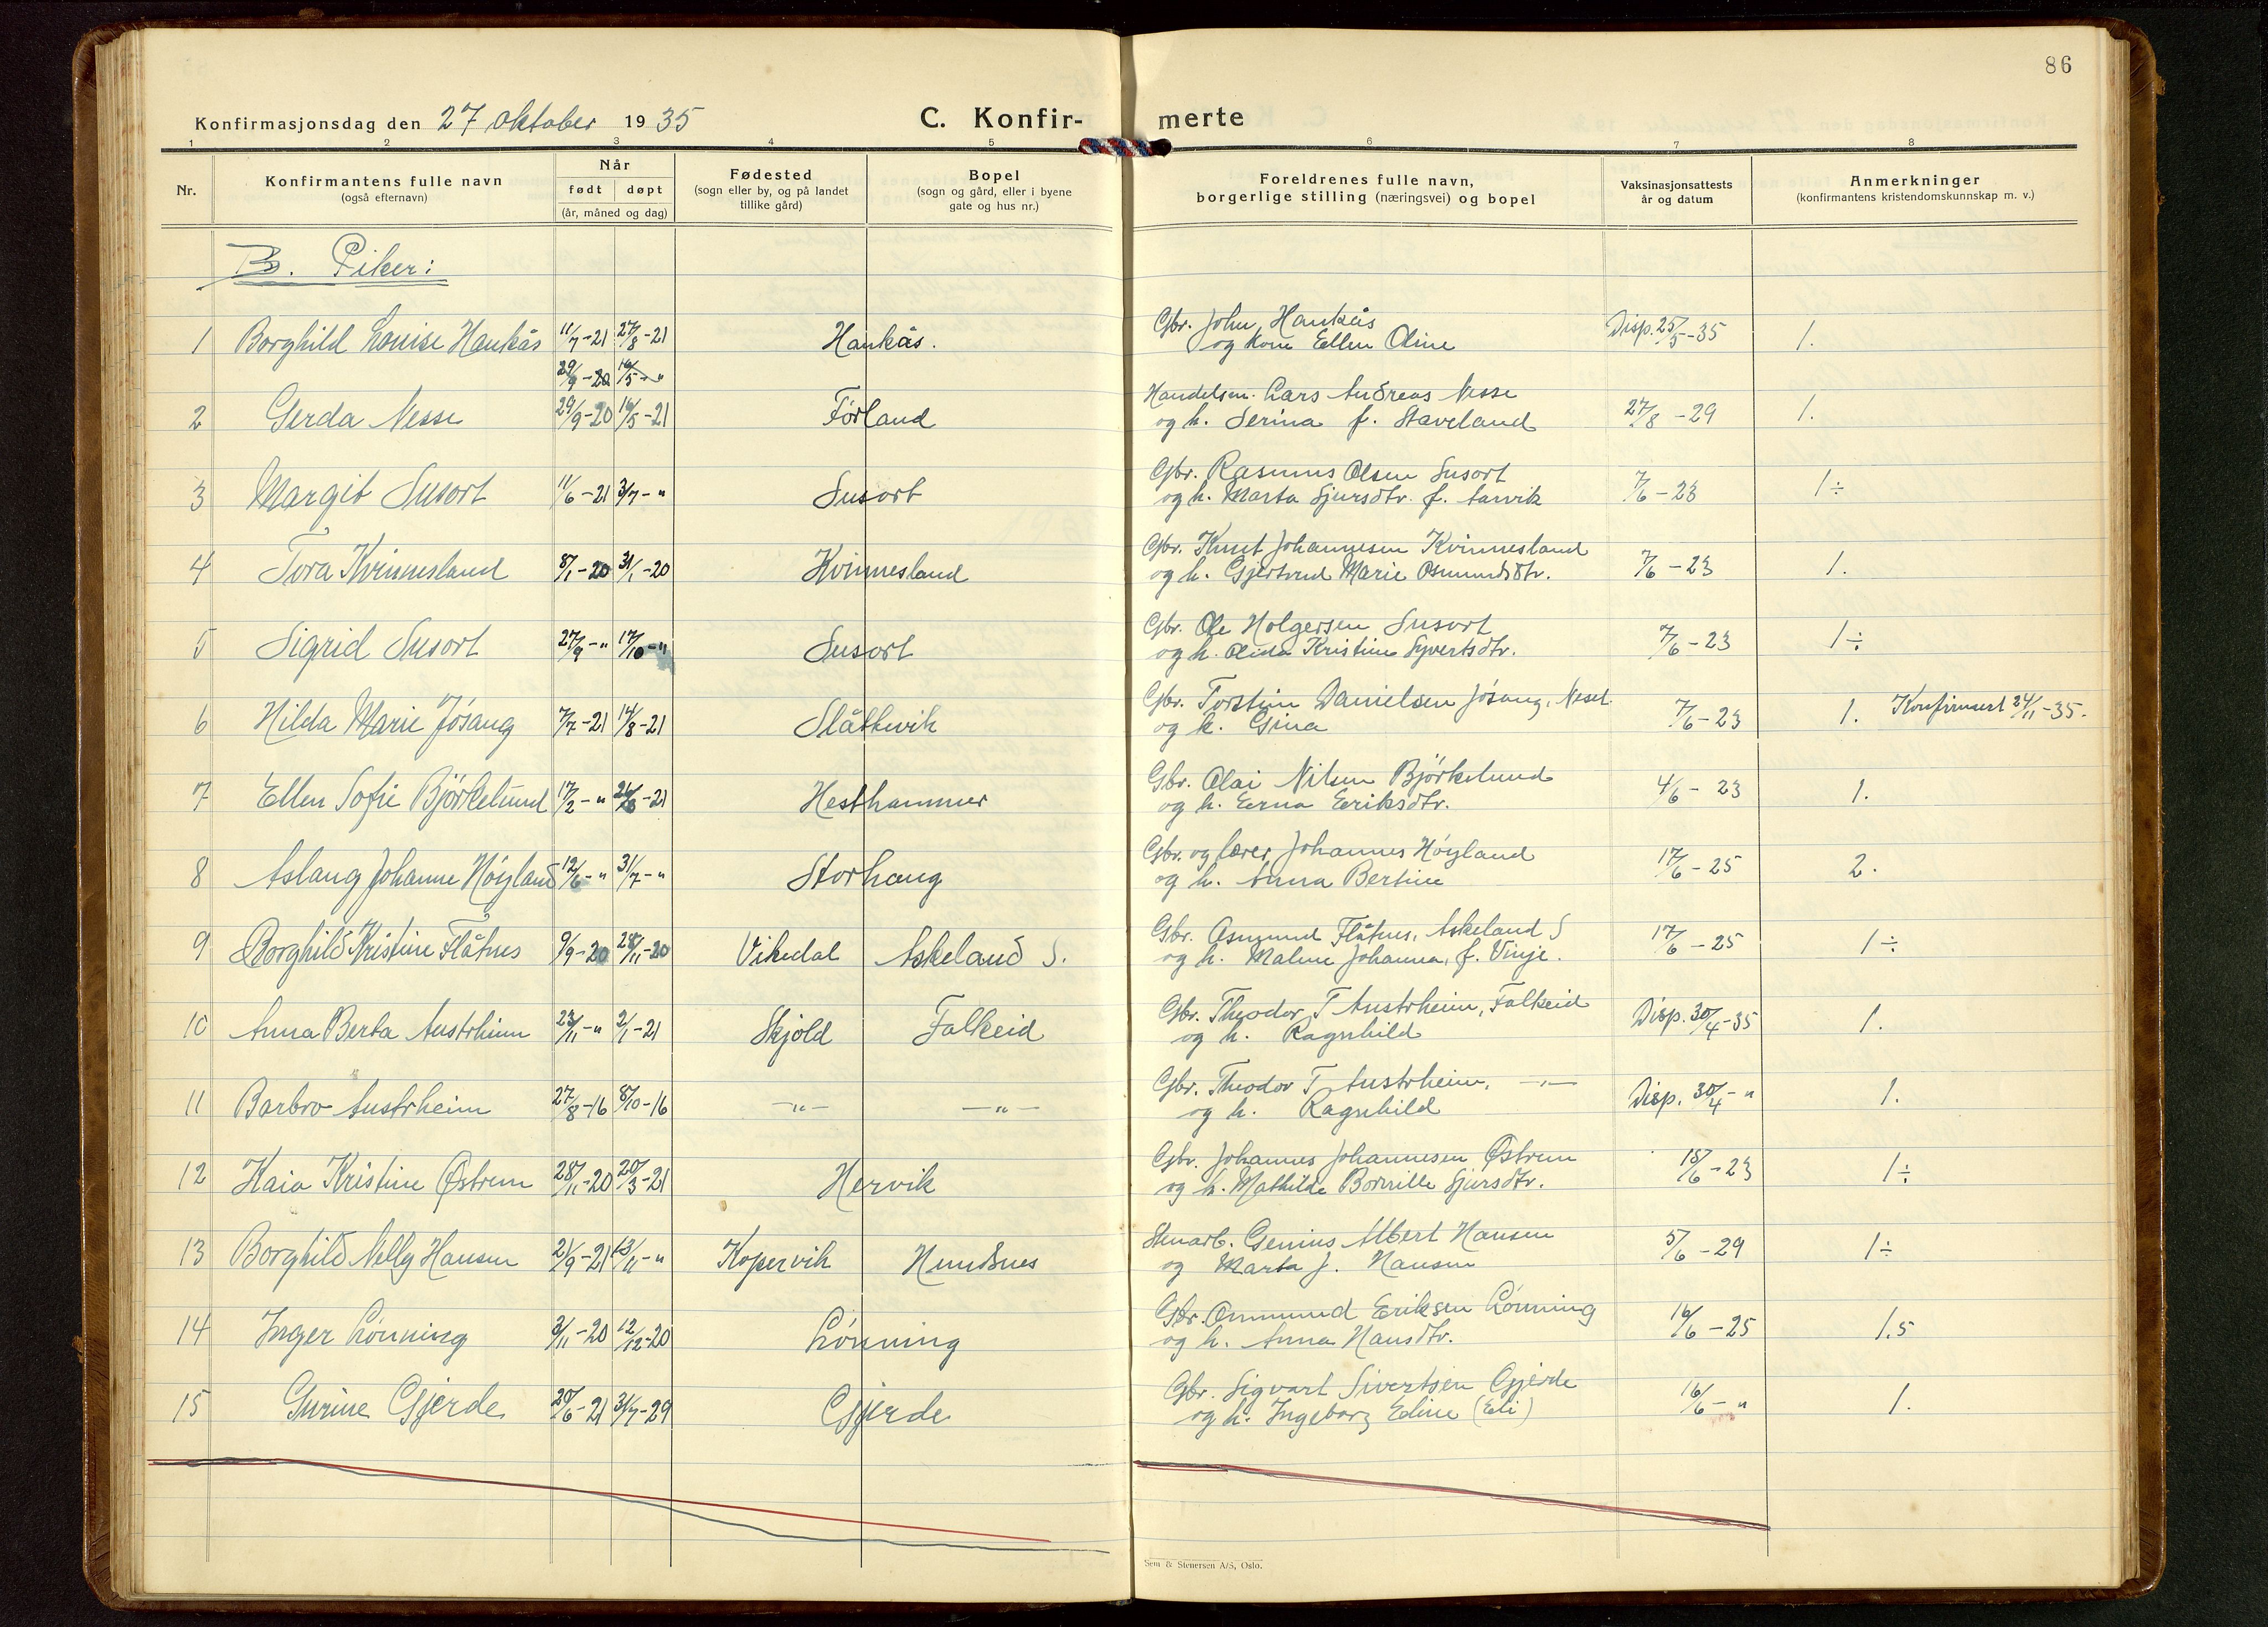 86
Konfirmasjonsdag den 27 oktober 1935
C. Konfir- merte
1 2 3 4 5 6 7 8
Nr.
Konfirmantens fulle navn
(også efternavn)
Når
født døpt
(år, måned og dag)
Fødested
(sogn eller by, og på landet
tillike gård)
Bopel
(sogn og gård, eller i byene
gate og hus nr.)
Foreldrenes fulle navn,
borgerlige stilling (næringsvei) og bopel
Vaksinasjonsattests
år og datum
Anmerkninger
(konfirmantens kristendomskunnskap m. v.)
B. Piker:
1 Borghild Louise Haukås 11/7-21 27/8-21 Haukås. Gbr. John Haukås
og kone Ellen Oline Disp. 25/5-35 1.
29/9-20 16/5-"
2 Gerda Nesse 29/9-20 16/5-21 Førland Handelsm. Lars Andreas Nesse
og h. Serina f. Staveland 27/8-29 1.
3 Margit Susort 11/6-21 3/7-" Susort Gbr. Rasmus Olsen Susort
og h. Marta Sjursdtr. f. Aarvik 7/6-23 1÷
4 Tora Kvinnesland 8/1-20 31/1-20 Kvinnesland Gbr. Knut Johannesen Kvinnesland
og h. Gjertrud Marie Osmundsdtr. 7/6-23 1.
5 Sigrid Susort 27/9-" 17/10-" Susort Gbr. Ole Holgersen Susort
og h. Olida Kristine Syvertsdtr. 7/6-23 1÷
6 Hilda Marie Jósang 7/7-21 14/8-21 Slåttevik Gbr. Torstein Danielsen Jósang, Neset
og k. Gina 7/6-23 1. Konfirmert 24/11-35.
7 Ellen Sofie Björkelund 17/2-" 26/6-21 Hesthammer Gbr. Olai Nilsen Björkelund
og h. Eerna Eeriksdtr. 4/6-23 1.
8 Aslaug Johanne Höyland 12/6-" 31/7-" Storhaug Gbr. og lærer Johannes Höyland
og h. Anna Bertine 17/6-25 2.
9 Borghild Kristine Flåtnes 9/9-20 28/11-20 Vikedal Askeland S. Gbr. Asmund Flåtnes, Askeland S
og h. Malene Johanna, f. Vinje. 17/6-25 1÷
10 Anna Berta Austrheim 23/11-" 2/1-21 Skjold Falkeid Gbr. Theodor T Austrheim, Falkeid
og h. Ragnhild Disp. 30/4-35 1.
11 Barbro Austrheim 27/8-16 8/10-16 -"- -"- Gbr. Theodor T Austrheim, -"-
og h. Ragnhild Disp. 30/4-" 1.
12 Kaia Kristine Østrem 28/11-20 20/3-21 Hervik Gbr. Johannes Johannesen Østrem
og h. Mathilde Bornille Sjursdtr. 18/6-23 1÷
13 Borghild Nelly Hansen 21/9-21 13/11-" Kopervik Hundsnes Stenarb. Genius Albert Hansen
og Marta J. Hansen 5/6-29 1÷
14 Inger Lónning 3/11-20 12/12-20 Lónning Gbr. Ommund Eriksen Lónning
og h. Anna Hansdtr. 16/6-25 1,5
15 Gurine Gjerde 20/6-21 31/7-29 Gjerde Gbr. Sigvart Sivertsen Gjerde
og h. Ingeborg Edine (Eli) 16/6-" 1.
Sem & Stenersen A/S, Oslo.